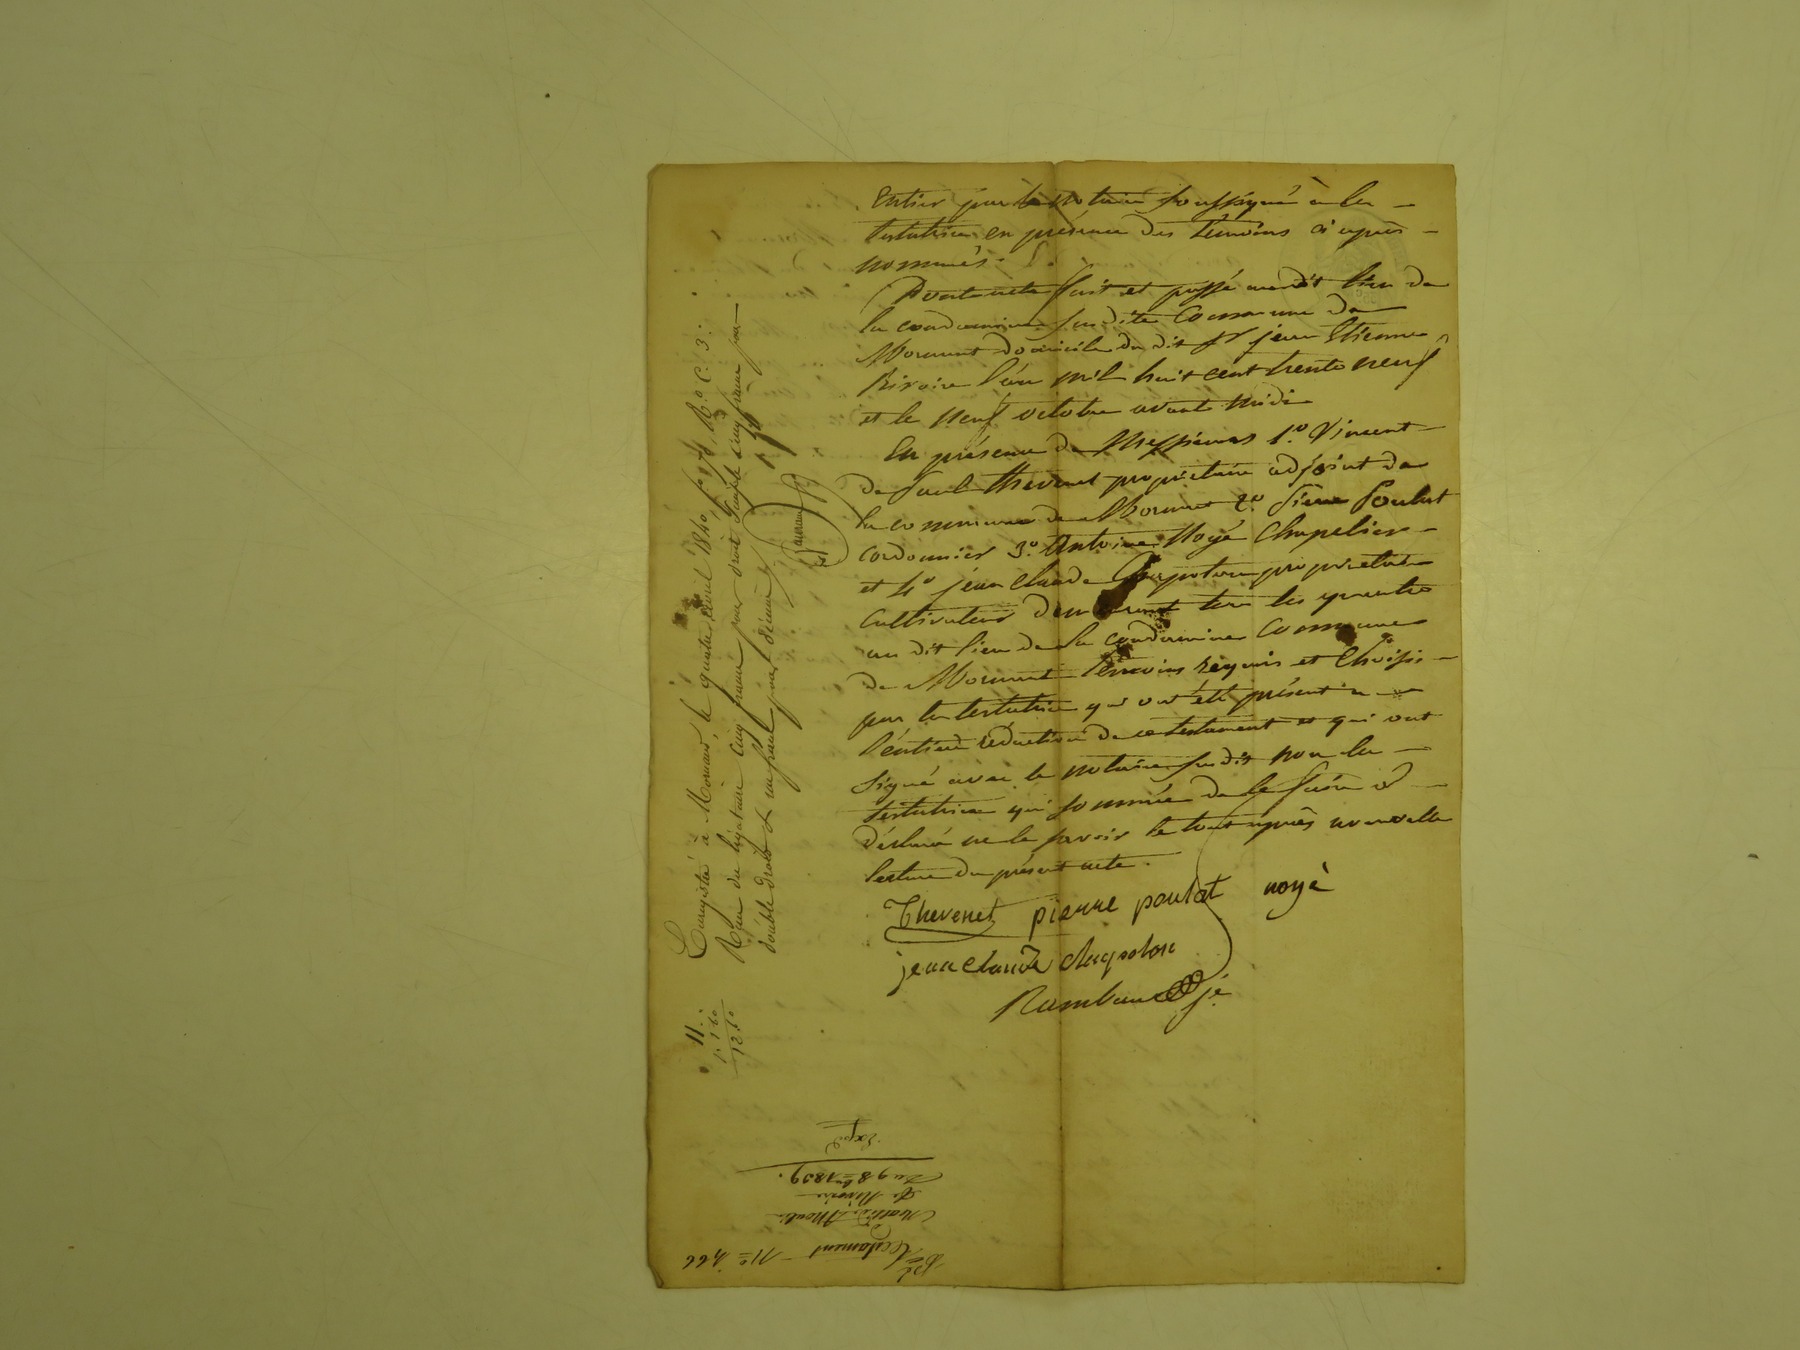 Entier par le notaire soussigné à la
testatrice en présence des témoins ci après
nommés.
Dont acte fait et passé audit lieu de
la condamine susdite Commune de
Mornant domicile du dit Sr jean Etienne
Rivoire l'an mil huit cent trente neuf
et le neuf octobre avant midi
En présence de Messieurs 1.º Vincent
de Paul thevenet propriétaire adjoint de
la commune de Mornant 2.º Pierre Poulat
cordonnier 3.º Antoine Noyé Chapelier
et 4.º jean claude propriétaire
cultivateur demeurant tous les quatre
au dit lieu de la condamine Commune
de Mornant témoins requis et choisis
par la testatrice qui ont été présent a
l'entière rédaction de ce testament et qui ont
signé avec le notaire susdit non la
testatrice qui sommée de le faire a
déclaré ne le savoir le tout après nouvelle
lecture du présent acte.
Thevenet pierre poulat noyé
jean claude
Rambaud je
Enregistré à Mornant, le quatre avril 1840, fº Rº C. 3.
Reçu du légataire cinq francs pour droit simple cinq francs pour
double droit & un franc pour décime
11.
1.10
12.10
Testament Nº 466
de
Moulin
Fe Rivoire
Du 9 8bre 1839.
Expd